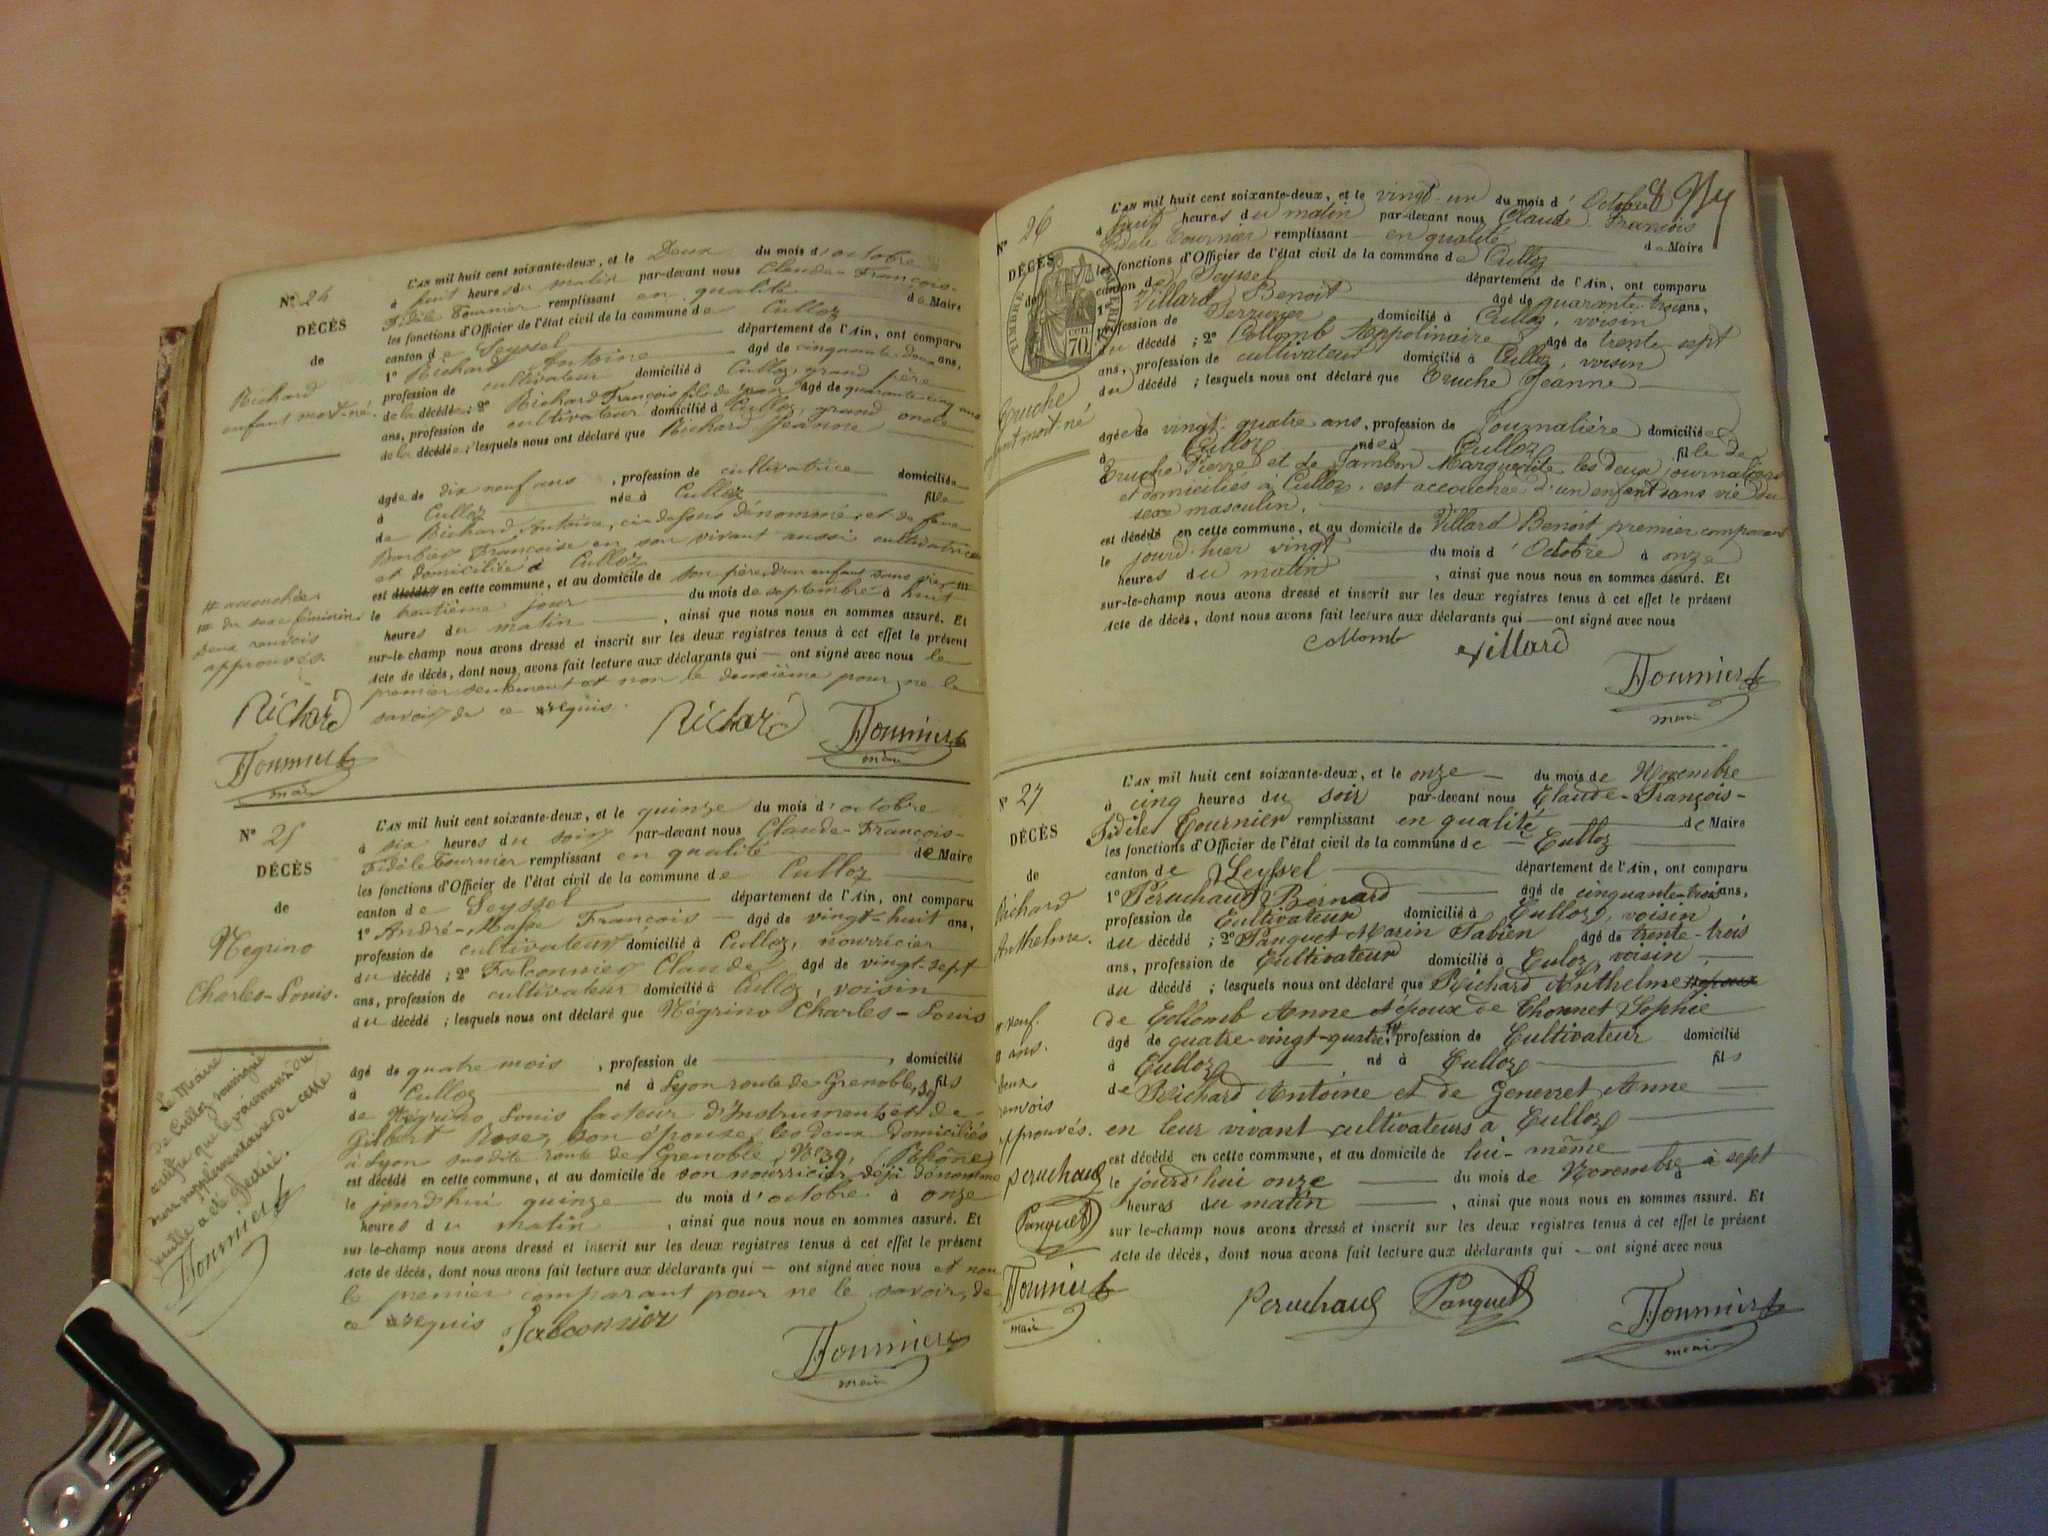 N° 24
DÉCÈS
de
Richard
enfant mort-né.
L'AN mil huit cent soixante-deux, et le Deux du mois d'octobre
à huit heures du matin par-devant nous Claude-François-
Fidèle Fournier remplissant en qualité de Maire
les fonctions d'Officier de l'état civil de la commune de Culloz
canton de Seyssel département de l'Ain, ont comparu
1° Richard Antoine âgé de cinquante deux ans,
profession de cultivateur domicilié à Culloz, grand père
de la décédée ; 2° Richard François fils de Jean âgé de quarante-cinq ans
ans, profession de cultivateur domicilié à Culloz, grand oncle
de la décédée ; lesquels nous ont déclaré que Richard Jeanne
âgée de dix neuf ans , profession de cultivatrice domiciliée
à Culloz née à Culloz fille
de Richard Antoine, ci-dessus dénommé, et de feue
Barbier Françoise en son vivant aussi cultivatrice
et domiciliée à Culloz
est décédé en cette commune, et au domicile de son père, d'un enfant sans vie #
le trentième jour du mois de septembre à huit
heures du matin , ainsi que nous nous en sommes assuré. Et
sur-le-champ nous avons dressé et inscrit sur les deux registres tenus à cet effet le présent
Acte de décès, dont nous avons fait lecture aux déclarants qui — ont signé avec nous le
premier seulement et non le deuxième pour ne le
savoir de ce requis.
# accouchée
# du sexe féminin
Deux renvois
approuvés.
Richard
Fournier
maire
Richard
Fournier
maire
N° 25
DÉCÈS
de
Négrino
Charles-Louis.
L'AN mil huit cent soixante-deux, et le quinze du mois d'octobre
à six heures du soir par-devant nous Claude-François-
Fidèle Fournier remplissant en qualité de Maire
les fonctions d'Officier de l'état civil de la commune de Culloz
canton de Seyssel département de l'Ain, ont comparu
1° André-Masse François — âgé de vingt-huit ans,
profession de cultivateur domicilié à Culloz, nourricier
du décédé ; 2° Falconnier Claude âgé de vingt-sept
ans, profession de cultivateur domicilié à Culloz, voisin
du décédé ; lesquels nous ont déclaré que Négrino Charles-Louis
âgé de quatre mois , profession de , domicilié
à Culloz né à Lyon route de Grenoble, 39 fils
de Négrino Louis facteur d'Instruments et de
Gilbert Rose, son épouse, les deux domiciliés
à Lyon susdite route de Grenoble, N° 39, (Rhône)
est décédé en cette commune, et au domicile de son nourricier, déjà dénommé
le jourd'hui quinze du mois d'octobre à onze
heures du matin , ainsi que nous nous en sommes assuré. Et
sur-le-champ nous avons dressé et inscrit sur les deux registres tenus à cet effet le présent
Acte de décès, dont nous avons fait lecture aux déclarants qui — ont signé avec nous et non
le premier comparant pour ne le savoir, de
ce requis
Falconnier
Fournier
maire
Le Maire
de Culloz soussigné
certifie que le paiement du
supplémentaire de cette
feuille a été effectué.
Fournier
N° 26
DÉCÈS
de
TIMBRE IMPÉRIAL
70
Cruche
enfant mort-né
L'AN mil huit cent soixante-deux, et le vingt-un du mois d'Octobre
à huit heures du matin par-devant nous Claude François
Fidèle Fournier remplissant en qualité de Maire
les fonctions d'Officier de l'état civil de la commune de Culloz
canton de Seyssel département de l'Ain, ont comparu
1° Villard Benoit âgé de quarante-trois ans,
profession de Serrurier domicilié à Culloz, voisin
du décédé ; 2° Collomb Appolinaire âgé de trente-sept
ans, profession de cultivateur domicilié à Culloz, voisin
du décédé ; lesquels nous ont déclaré que Cruche Jeanne
âgée de vingt-quatre ans, profession de Journalière domiciliée
à Culloz née à Culloz fille de
Cruche Pierre et de Jambon Marguerite les deux journaliers
et domiciliés à Culloz, est accouchée d'un enfant sans vie du
sexe masculin.
est décédé en cette commune, et au domicile de Villard Benoit premier comparant
le jourd'hier vingt du mois d'Octobre à onze
heures du matin , ainsi que nous nous en sommes assuré. Et
sur-le-champ nous avons dressé et inscrit sur les deux registres tenus à cet effet le présent
Acte de décès, dont nous avons fait lecture aux déclarants qui — ont signé avec nous
Collomb Villard
Fournier
maire
N° 27
DÉCÈS
de
Richard
Anthelme.
L'AN mil huit cent soixante-deux, et le onze — du mois de Novembre
à cinq heures du soir par-devant nous Claude-François-
Fidèle Fournier remplissant en qualité de Maire
les fonctions d'Officier de l'état civil de la commune de Culloz
canton de Seyssel département de l'Ain, ont comparu
1° Péruchaud Bernard âgé de cinquante-trois ans,
profession de Cultivateur domicilié à Culloz, voisin
du décédé ; 2° Panguet Marin Fabien âgé de trente-trois
ans, profession de Cultivateur domicilié à Culoz, voisin
du décédé ; lesquels nous ont déclaré que Richard Anthelme
de Collomb Anne et époux de Chonnet Sophie
âgé de quatre-vingt-quatre profession de Cultivateur domicilié
à Culloz né à Culloz fils
de Richard Antoine et de Genevret Anne
en leur vivant cultivateurs à Culloz
est décédé en cette commune, et au domicile de lui-même
le jourd'hui onze du mois de Novembre à sept
heures du matin , ainsi que nous nous en sommes assuré. Et
sur-le-champ nous avons dressé et inscrit sur les deux registres tenus à cet effet le présent
Acte de décès, dont nous avons fait lecture aux déclarants qui — ont signé avec nous
deux
renvois
approuvés.
Peruchaud
Panguet
Fournier
maire
Peruchaud Panguet
Fournier
maire